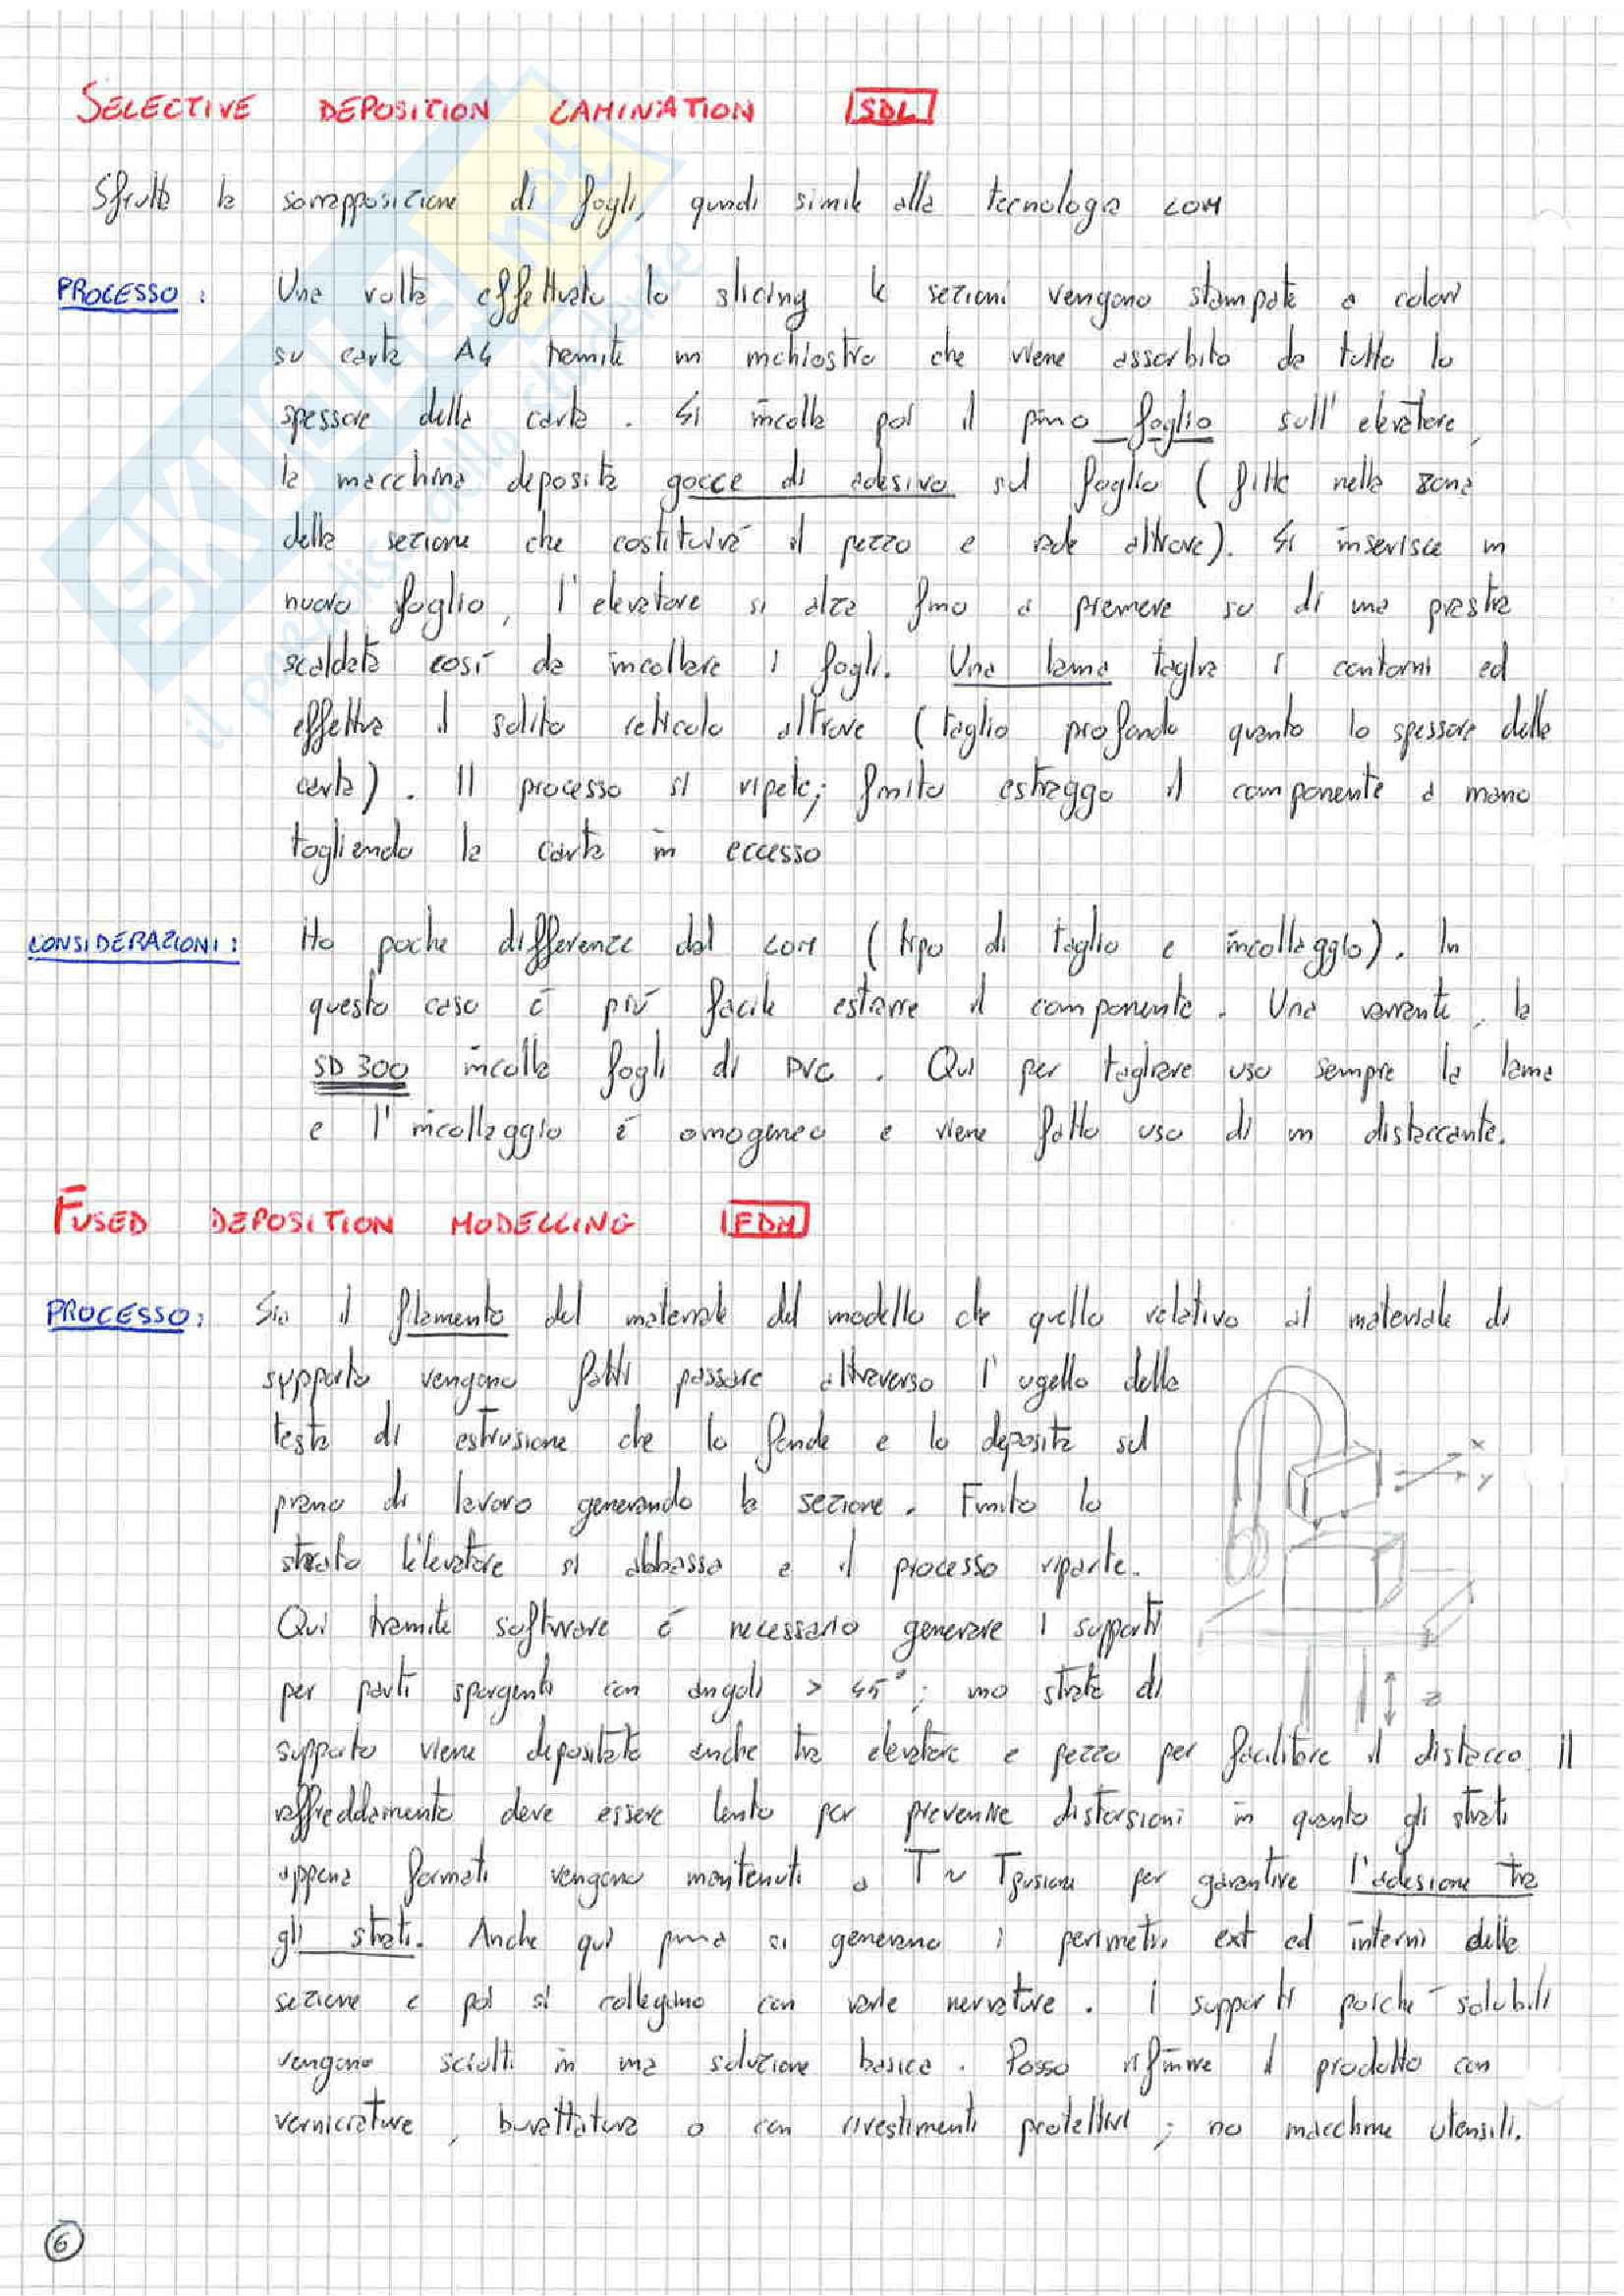 SELECTIVE DEPOSITION LAMINATION SDL
Sfrutta la sovrapposizione di fogli, quindi simile alla tecnologia LOM
PROCESSO: Una volta effettuato lo slicing le sezioni vengono stampate a colori
su carta A4 tramite un inchiostro che viene assorbito da tutto lo
spessore della carta. Si incolla poi il primo foglio sull'elevatore,
la macchina deposita gocce di adesivo sul foglio (fitte nella zona
della sezione che costituirà il pezzo e rade altrove). Si inserisce un
nuovo foglio, l'elevatore si alza fino a premere su di una piastra
scaldata così da incollare i fogli. Una lama taglia i contorni ed
effettua il solito reticolo altrove (taglio profondo quanto lo spessore della
carta). Il processo si ripete; finito estraggo il componente a mano
togliendo la carta in eccesso
CONSIDERAZIONI: Ho poche differenze dal LOM (tipo di taglio e incollaggio). In
questo caso è più facile estrarre il componente. Una variante, la
SD 300 incolla fogli di PVC. Qui per tagliare uso sempre la lama
e l'incollaggio è omogeneo e viene fatto uso di un distaccante.
FUSED DEPOSITION MODELLING FDM
PROCESSO: Sia il filamento del materiale del modello che quello relativo al materiale di
supporto vengono fatti passare attraverso l'ugello della
testa di estrusione che lo fonde e lo deposita sul
piano di lavoro generando la sezione. Finito lo
strato l'elevatore si abbassa e il processo riparte.
Qui tramite software è necessario generare i supporti
per parti sporgenti con angoli > 45°; uno strato di
supporto viene depositato anche tra elevatore e pezzo per facilitare il distacco. Il
raffreddamento deve essere lento per prevenire distorsioni in quanto gli strati
appena formati vengono mantenuti a T ~ Tfusione per garantire l'adesione tra
gli strati. Anche qui prima si generano i perimetri ext ed interni della
sezione e poi si collegano con varie nervature. I supporti poichè solubili
vengono sciolti in una soluzione basica. Posso rifinire il prodotto con
verniciature, burattatura o con rivestimenti protettivi; no macchine utensili.
x
y
z
6
SKUOLA.net
il paradiso dello studente